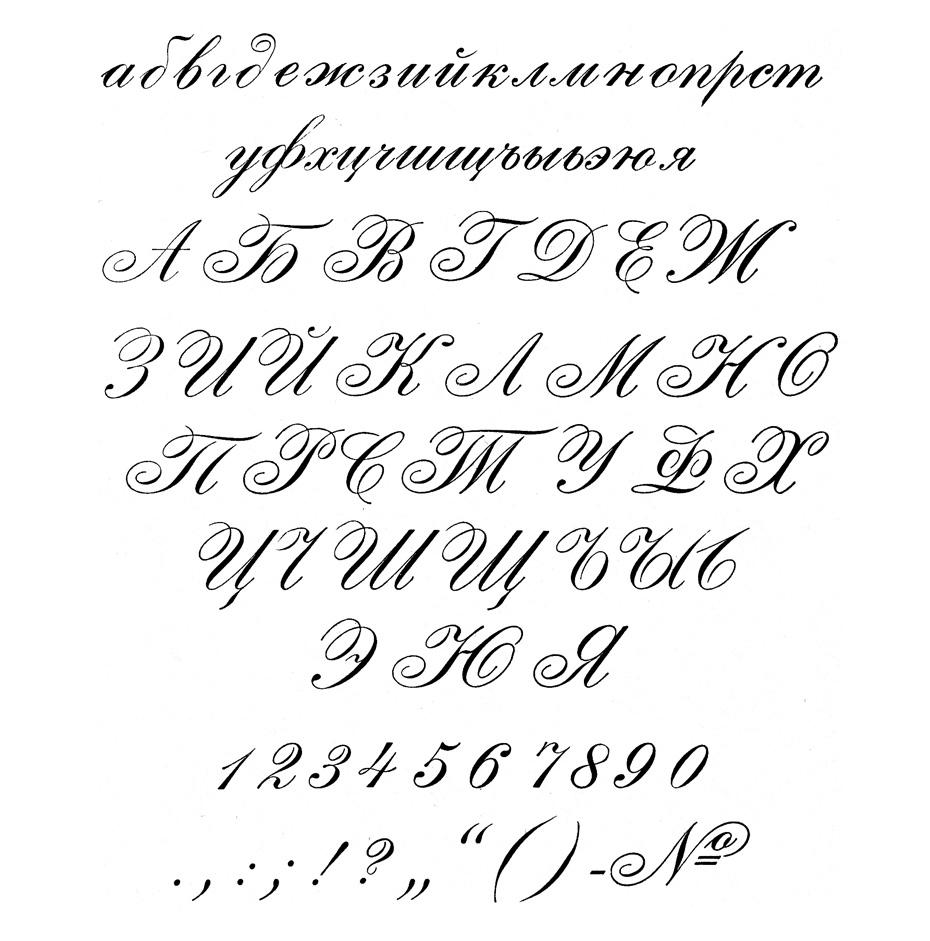 абвгдежзийклмнопрст
уфхцчшщъыьэюя
АБВГДЕЖ
ЗИЙКЛМНО
ПРСТУФХ
ЦЧШЩЪЫЬ
ЭЮЯ
1234567890
.,:;!?„“()-№